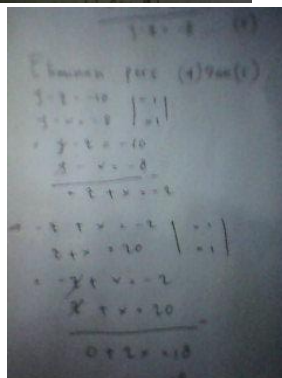 y - x = -8 (5)
Eliminasi pers (4) dan (5)
y - z = -10 | ×1 |
y - x = -8 | ×1 |
= y - z = -10
y - x = -8 -
= -z + x = -2
→ -z + x = -2 | ×1 |
z + x = 20 | ×1 |
= -z + x = -2
z + x = 20
0 + 2x = 18